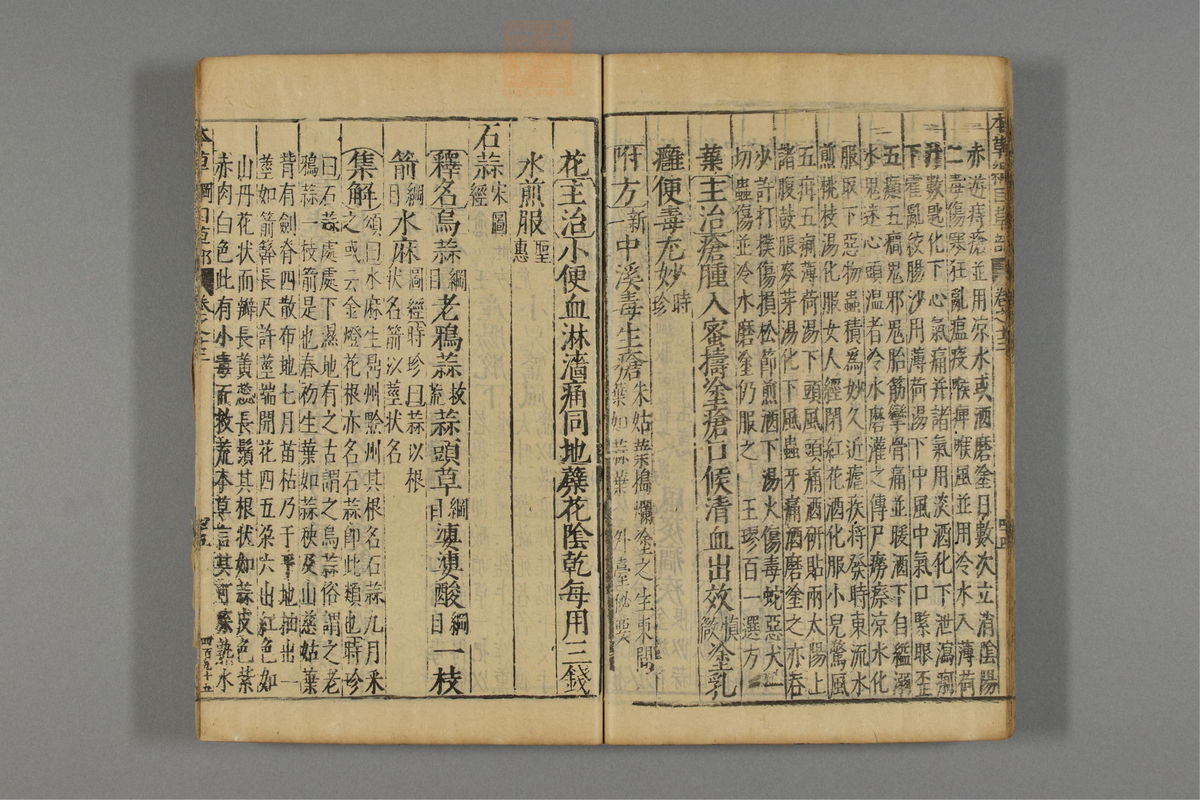 赤游痔瘡並用凉水或酒磨塗日數次立消陰陽
二毒傷寒狂亂瘟疫喉痺喉風並用冷水入薄荷
汁數匙化下心氣痛并諸氣用淡酒化下泄瀉痢
下霍亂絞腸沙用薄荷湯下中風中氣口緊眼歪
五癲五癇鬼邪鬼胎筋攣骨痛並暖酒下自縊溺
水鬼迷心頭温者冷水磨灌之傳尸癆瘵凉水化
服取下惡物蟲積為妙久近瘧疾將發時東流水
煎桃枝湯化服女人經閉紅花酒化服小兒驚風
五疳五痢薄荷湯下頭風頭痛酒研貼兩太陽上
諸腹鼓脹麥芽湯化下風蟲牙痛酒磨塗之亦吞
少許打撲傷損松節煎酒下湯火傷毒蛇惡犬一
切蟲傷並冷水磨塗仍服之 王璆百一選方
葉主治瘡腫入蜜擣塗瘡口候清血出效慎微塗乳
癰便毒尤妙時珍
附方新一中溪毒生瘡朱姑葉擣爛塗之生東間葉如蒜葉 外臺秘要
花主治小便血淋濇痛同地蘗花陰乾每用三錢
水煎服聖惠
石蒜宋圖經
釋名烏蒜綱目老鴉蒜救荒蒜頭草綱目婆婆酸綱目一枝
箭綱目水麻圖經時珍曰蒜以根狀名箭以莖狀名
集解頌曰水麻生鼎州黔州其根名石蒜九月采之或云金燈花根亦名石蒜即此類也時珍
曰石蒜處處下濕地有之古謂之烏蒜俗謂之老
鴉蒜一枝箭是也春初生葉如蒜秧及山慈姑葉
背有劍脊四散布地七月苗枯乃于平地抽出一
莖如箭簳長尺許莖端開花四五朶六出紅色如
山丹花狀而瓣長黄蕊長鬚其根狀如蒜皮色紫
赤肉白色此有小毒而救荒本草言其可煠熟水
本草綱目草部 卷之十三
四百五十五